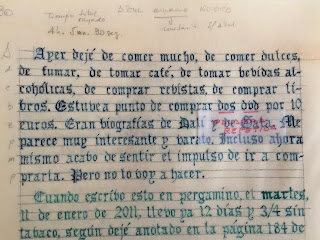 Ayer dejé de comer mucho, de comer dulces,
de fumar, de tomar café, de tomar bebidas al-
cohólicas, de comprar revistas, de comprar li-
bros. Estube a punto de comprar dos dvd por 10
euros. Eran biografías de Dalí y de Me
parece muy interesante y varato. Incluso ahora
mismo acabo de sentir el impulso de ir a com-
prarla. Pero no lo voy a hacer.
Cuando escribo esto en pergamino, el martes,
11 de enero de 2011, llevo ya 12 días y 3/4 sin
tabaco, según dejé anotado en la página 184 de